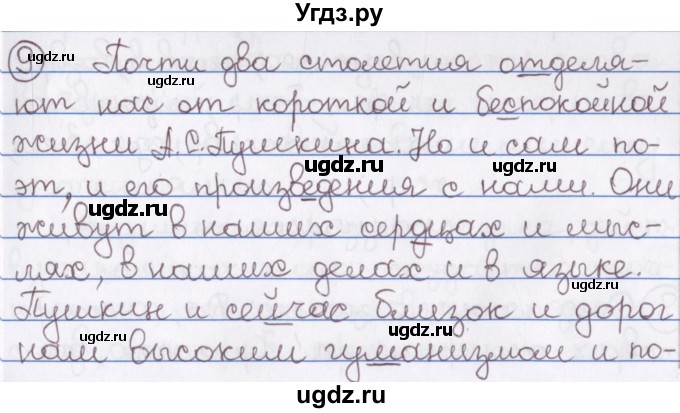 Угдз.ру
9 Почти два столетия отделя-
ют нас от короткой и беспокойной
жизни А.С.Пушкина. Но и сам по-
эт, и его произведения с нами. Они
живут в наших сердцах и мыс-
лях, в наших делах и в языке.
Пушкин и сейчас близок и дорог
нам высоким гуманизмом и по-
ugdz.ru